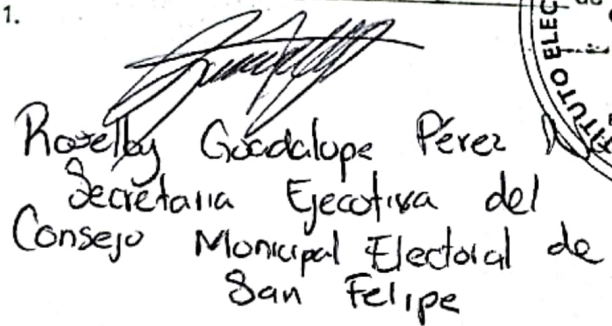 1.
Roselby Guadalupe Pérez
Secretaria Ejecutiva del
Consejo Municipal Electoral de
San Felipe